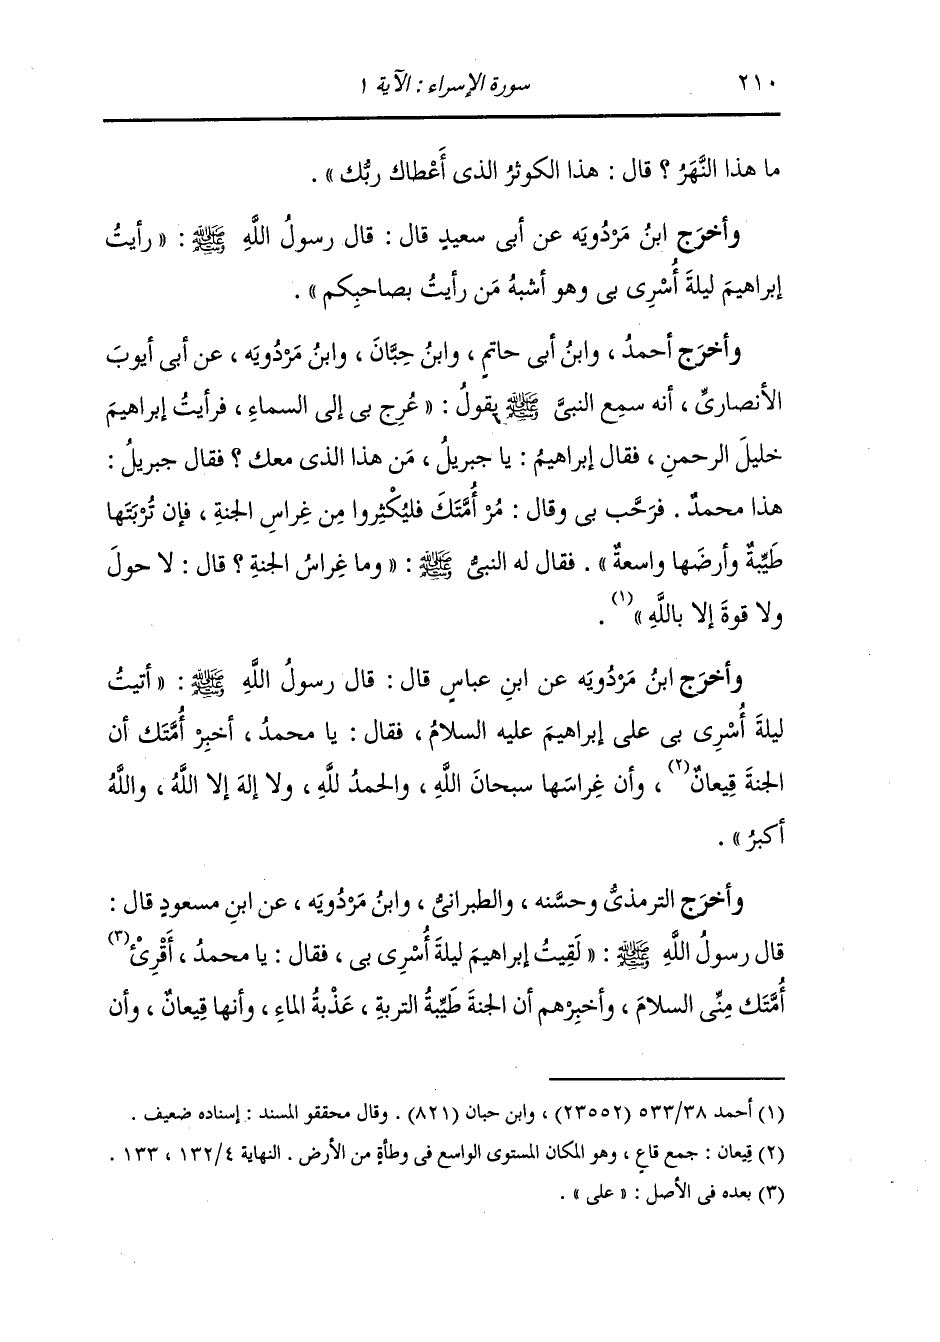 ٢١٠
سورة الإسراء : الآية ١
ما هذا النَّهَرُ ؟ قال : هذا الكوثرُ الذى أَعْطاك ربُّك » .
وأخرَج ابنُ مَرْدُويَه عن أبى سعيدٍ قال : قال رسولُ اللَّهِ ﷺ : « رأيتُ
إبراهيمَ ليلةَ أُسْرِى بى وهو أشبهُ مَن رأيتُ بصاحبِكم » .
وأخرَج أحمدُ ، وابنُ أبى حاتمٍ ، وابنُ حِبَّانَ ، وابنُ مَرْدُويَه ، عن أبى أيوبَ
الأنصارىِّ ، أنه سمِع النبىَّ ﷺ يقولُ : « عُرِج بى إلى السماءِ ، فرأيتُ إبراهيمَ
خليلَ الرحمنِ ، فقال إبراهيمُ : يا جبريلُ ، مَن هذا الذى معك ؟ فقال جبريلُ :
هذا محمدٌ . فرَحَّب بى وقال : مُرْ أُمَّتَكَ فليُكْثِروا مِن غِراسِ الجنةِ ، فإن تُرْبَتَها
طَيِّبةٌ وأرضَها واسعةٌ » . فقال له النبىُّ ﷺ : « وما غِراسُ الجنةِ ؟ قال : لا حولَ
ولا قوةَ إلا باللَّهِ »(١) .
وأخرَج ابنُ مَرْدُويَه عن ابنِ عباسٍ قال : قال رسولُ اللَّهِ ﷺ : « أتيتُ
ليلةَ أُسْرِى بى على إبراهيمَ عليه السلامُ ، فقال : يا محمدُ ، أخبِرْ أُمَّتَك أن
الجنةَ قِيعانٌ(٢) ، وأن غِراسَها سبحانَ اللَّهِ ، والحمدُ للَّهِ ، ولا إلهَ إلا اللَّهُ ، واللَّهُ
أكبرُ » .
وأخرَج الترمذىُّ وحسَّنه ، والطبرانىُّ ، وابنُ مَرْدُويَه ، عن ابنِ مسعودٍ قال :
قال رسولُ اللَّهِ ﷺ : « لَقِيتُ إبراهيمَ ليلةَ أُسْرِى بى ، فقال : يا محمدُ ، أَقْرِئْ(٣)
أُمَّتَك مِنِّى السلامَ ، وأخبِرْهم أن الجنةَ طَيِّبةُ التربةِ ، عَذْبةُ الماءِ ، وأنها قِيعانٌ ، وأن
(١) أحمد ٥٣٣/٣٨ (٢٣٥٥٢) ، وابن حبان (٨٢١) . وقال محققو المسند : إسناده ضعيف .
(٢) قِيعان : جمع قاع ، وهو المكان المستوى الواسع فى وطأةٍ من الأرض . النهاية ١٣٢/٤ ، ١٣٣ .
(٣) بعده فى الأصل : « على » .